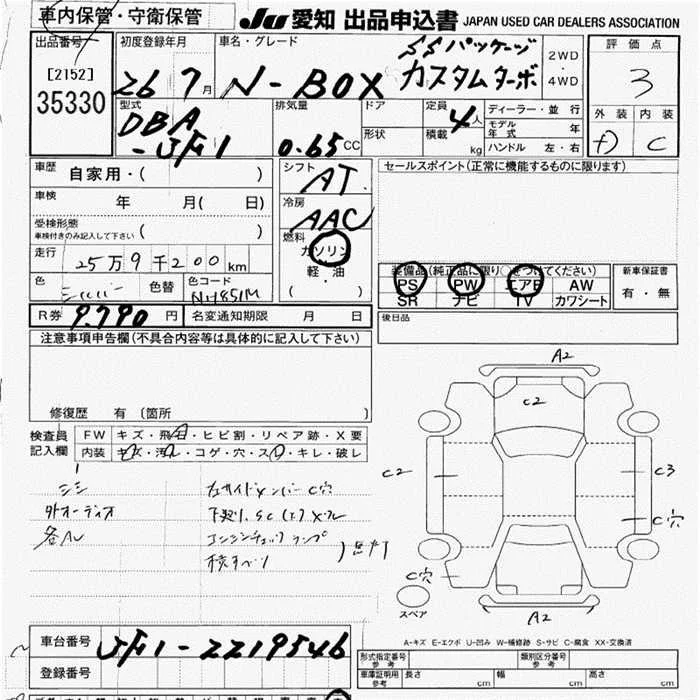 車内保管・守衛保管
JU 愛知 出品申込書 JAPAN USED CAR DEALERS ASSOCIATION
出品番号
[2152]
35330
初度登録年月
26 7月
車名・グレード
N-BOX
SSパッケージ
カスタムターボ
2WD
・
4WD
評価点
3
外装 内装
C
型式
DBA
-JF1
排気量
0.65 CC
ドア
形状
定員
4人
積載
kg
ディーラー・並行
モデル
年式 年
ハンドル 左・右
車歴
自家用・( )
車検
年 月( 日)
受検形態
車検付きのみ記入して下さい ( )
走行
25万9千200km
色
シルバー
色替
色コード
NH851M
R券 9.790 円
名変通知期限 月 日
シフト
AT
冷房
AAC
燃料
ガソリン
軽・油
( ・ )
セールスポイント(正常に機能するものに限ります)
装備品(純正品に限り○をつけてください)
PS PW エアB AW
SR ナビ TV カワシート
新車保証書
有・無
後日品
注意事項申告欄(不具合内容等は具体的に記入して下さい)
修復歴 有 〔箇所 〕
検査員
記入欄
FW キズ・飛石・ヒビ割・リペア跡・X要
内装 キズ・汚レ・コゲ・穴・スレ・キレ・破レ
外オーディオ
C穴
エンジンチェックランプ
A2
C2
C2
C3
C穴
C穴
スペア
A2
A-キズ E-エクボ U-凹み W-補修跡 S-サビ C-腐食 XX-交換済
車台番号
JF1-2219546
登録番号
形式指定番号
参考
類別区分番号
参考
車庫証明用
参考
長さ cm 幅 cm 高さ cm